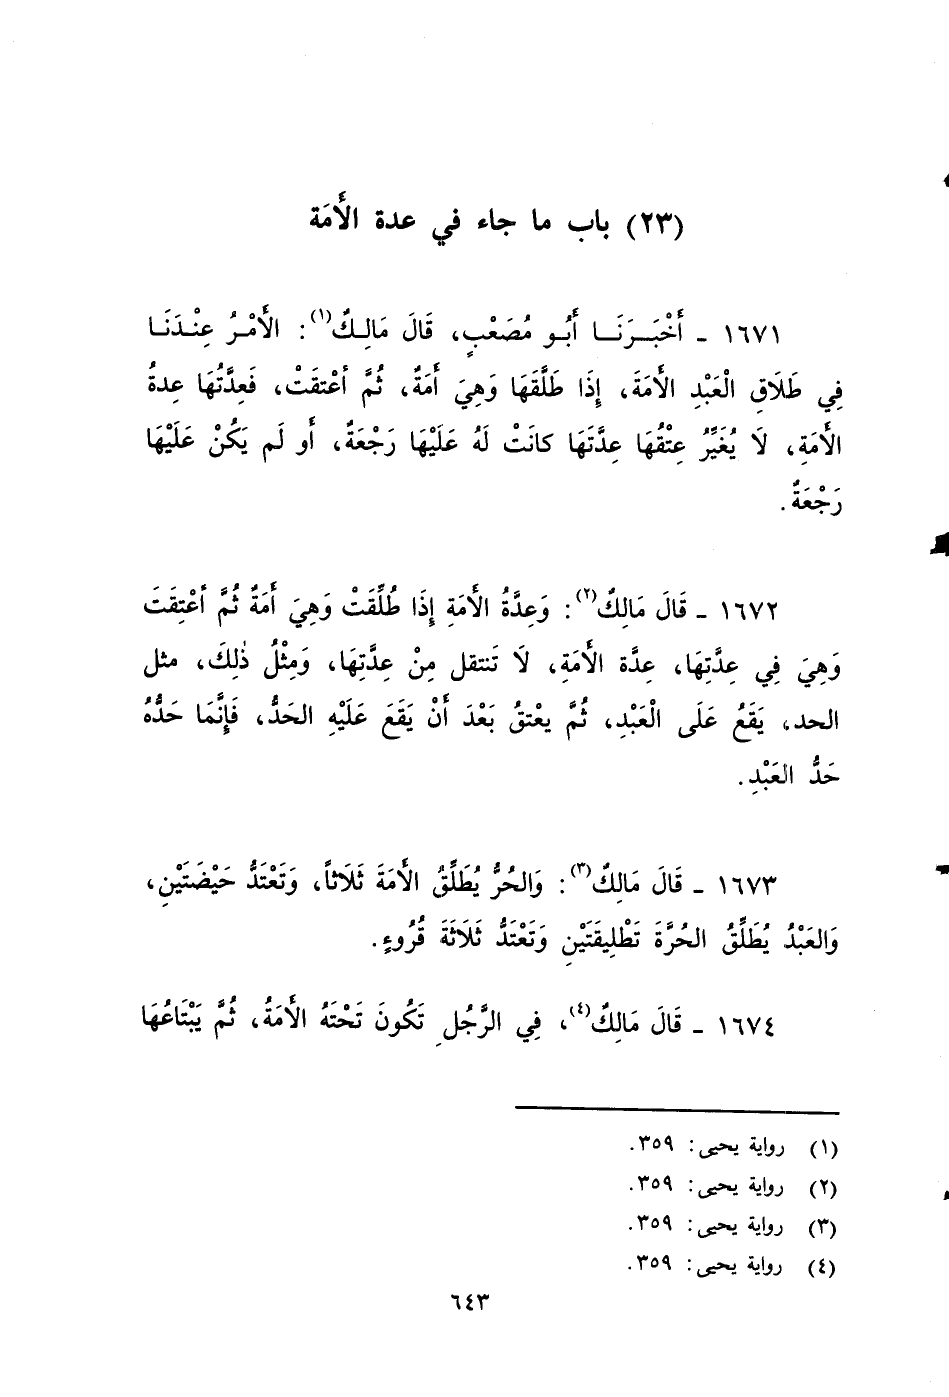 (٢٣) باب ما جاء في عدة الأَمَة
١٦٧١ ـ أَخْبَـرَنَـا أَبُـو مُصَعْبٍ، قَالَ مَالِـكٌ(١): الأَمْـرُ عِنْـدَنَـا
فِي طَلَاقِ الْعَبْدِ الأَمَةَ، إِذَا طَلَّقَهَا وَهِيَ أَمَةٌ، ثُمَّ أعْتقَتْ، فَعِدَّتُهَا عِدةُ
الأَمَةِ، لَا يُغَيِّرُ عِتْقُهَا عِدَّتَهَا كانَتْ لَهُ عَلَيْهَا رَجْعَةٌ، أَو لَم يَكُنْ عَلَيْهَا
رَجْعَةٌ.
١٦٧٢ ـ قَالَ مَالِكٌ(٢): وَعِدَّةُ الأَمَةِ إِذَا طُلِّقَتْ وَهِيَ أَمَةٌ ثُمَّ أعْتِقَتَ
وَهِيَ فِي عِدَّتِهَا، عِدَّة الأَمَةِ، لَا تَنتقل مِنْ عِدَّتِهَا، وَمِثْلُ ذٰلِكَ، مثل
الحد، يَقَعُ عَلَى الْعَبْدِ، ثُمَّ يعْتقُ بَعْدَ أَنْ يَقَعَ عَلَيْهِ الحَدُّ، فَإِنَّمَا حَدُّهُ
حَدُّ العَبْدِ.
١٦٧٣ ـ قَالَ مَالِكٌ(٣): وَالحُرُّ يُطَلِّقُ الأَمَةَ ثَلَاثاً، وَتَعْتَدُّ حَيْضَتَيْنِ،
وَالعَبْدُ يُطَلِّقُ الحُرَّةَ تَطْلِيقَتَيْنِ وَتَعْتَدُّ ثَلَاثَةَ قُرُوءٍ.
١٦٧٤ ـ قَالَ مَالِكٌ(٤)، فِي الرَّجُلِ تَكُونَ تَحْتَهُ الأَمَةُ، ثُمَّ يَبْتَاعُهَا
(١) رواية يحيى: ٣٥٩.
(٢) رواية يحيى: ٣٥٩.
(٣) رواية يحيى: ٣٥٩.
(٤) رواية يحيى: ٣٥٩.
٦٤٣